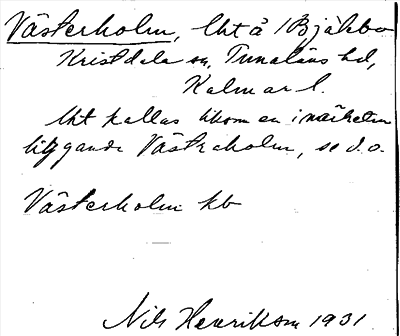 Västerholm, Uht å 1 Bjälebo
Kristdala sn, Tunaläns hd,
Kalmar l.
Uht kallas liksom en i närheten
liggande Västraholm, se d.o.
Västerholm kb
Nils Henrikson 1931